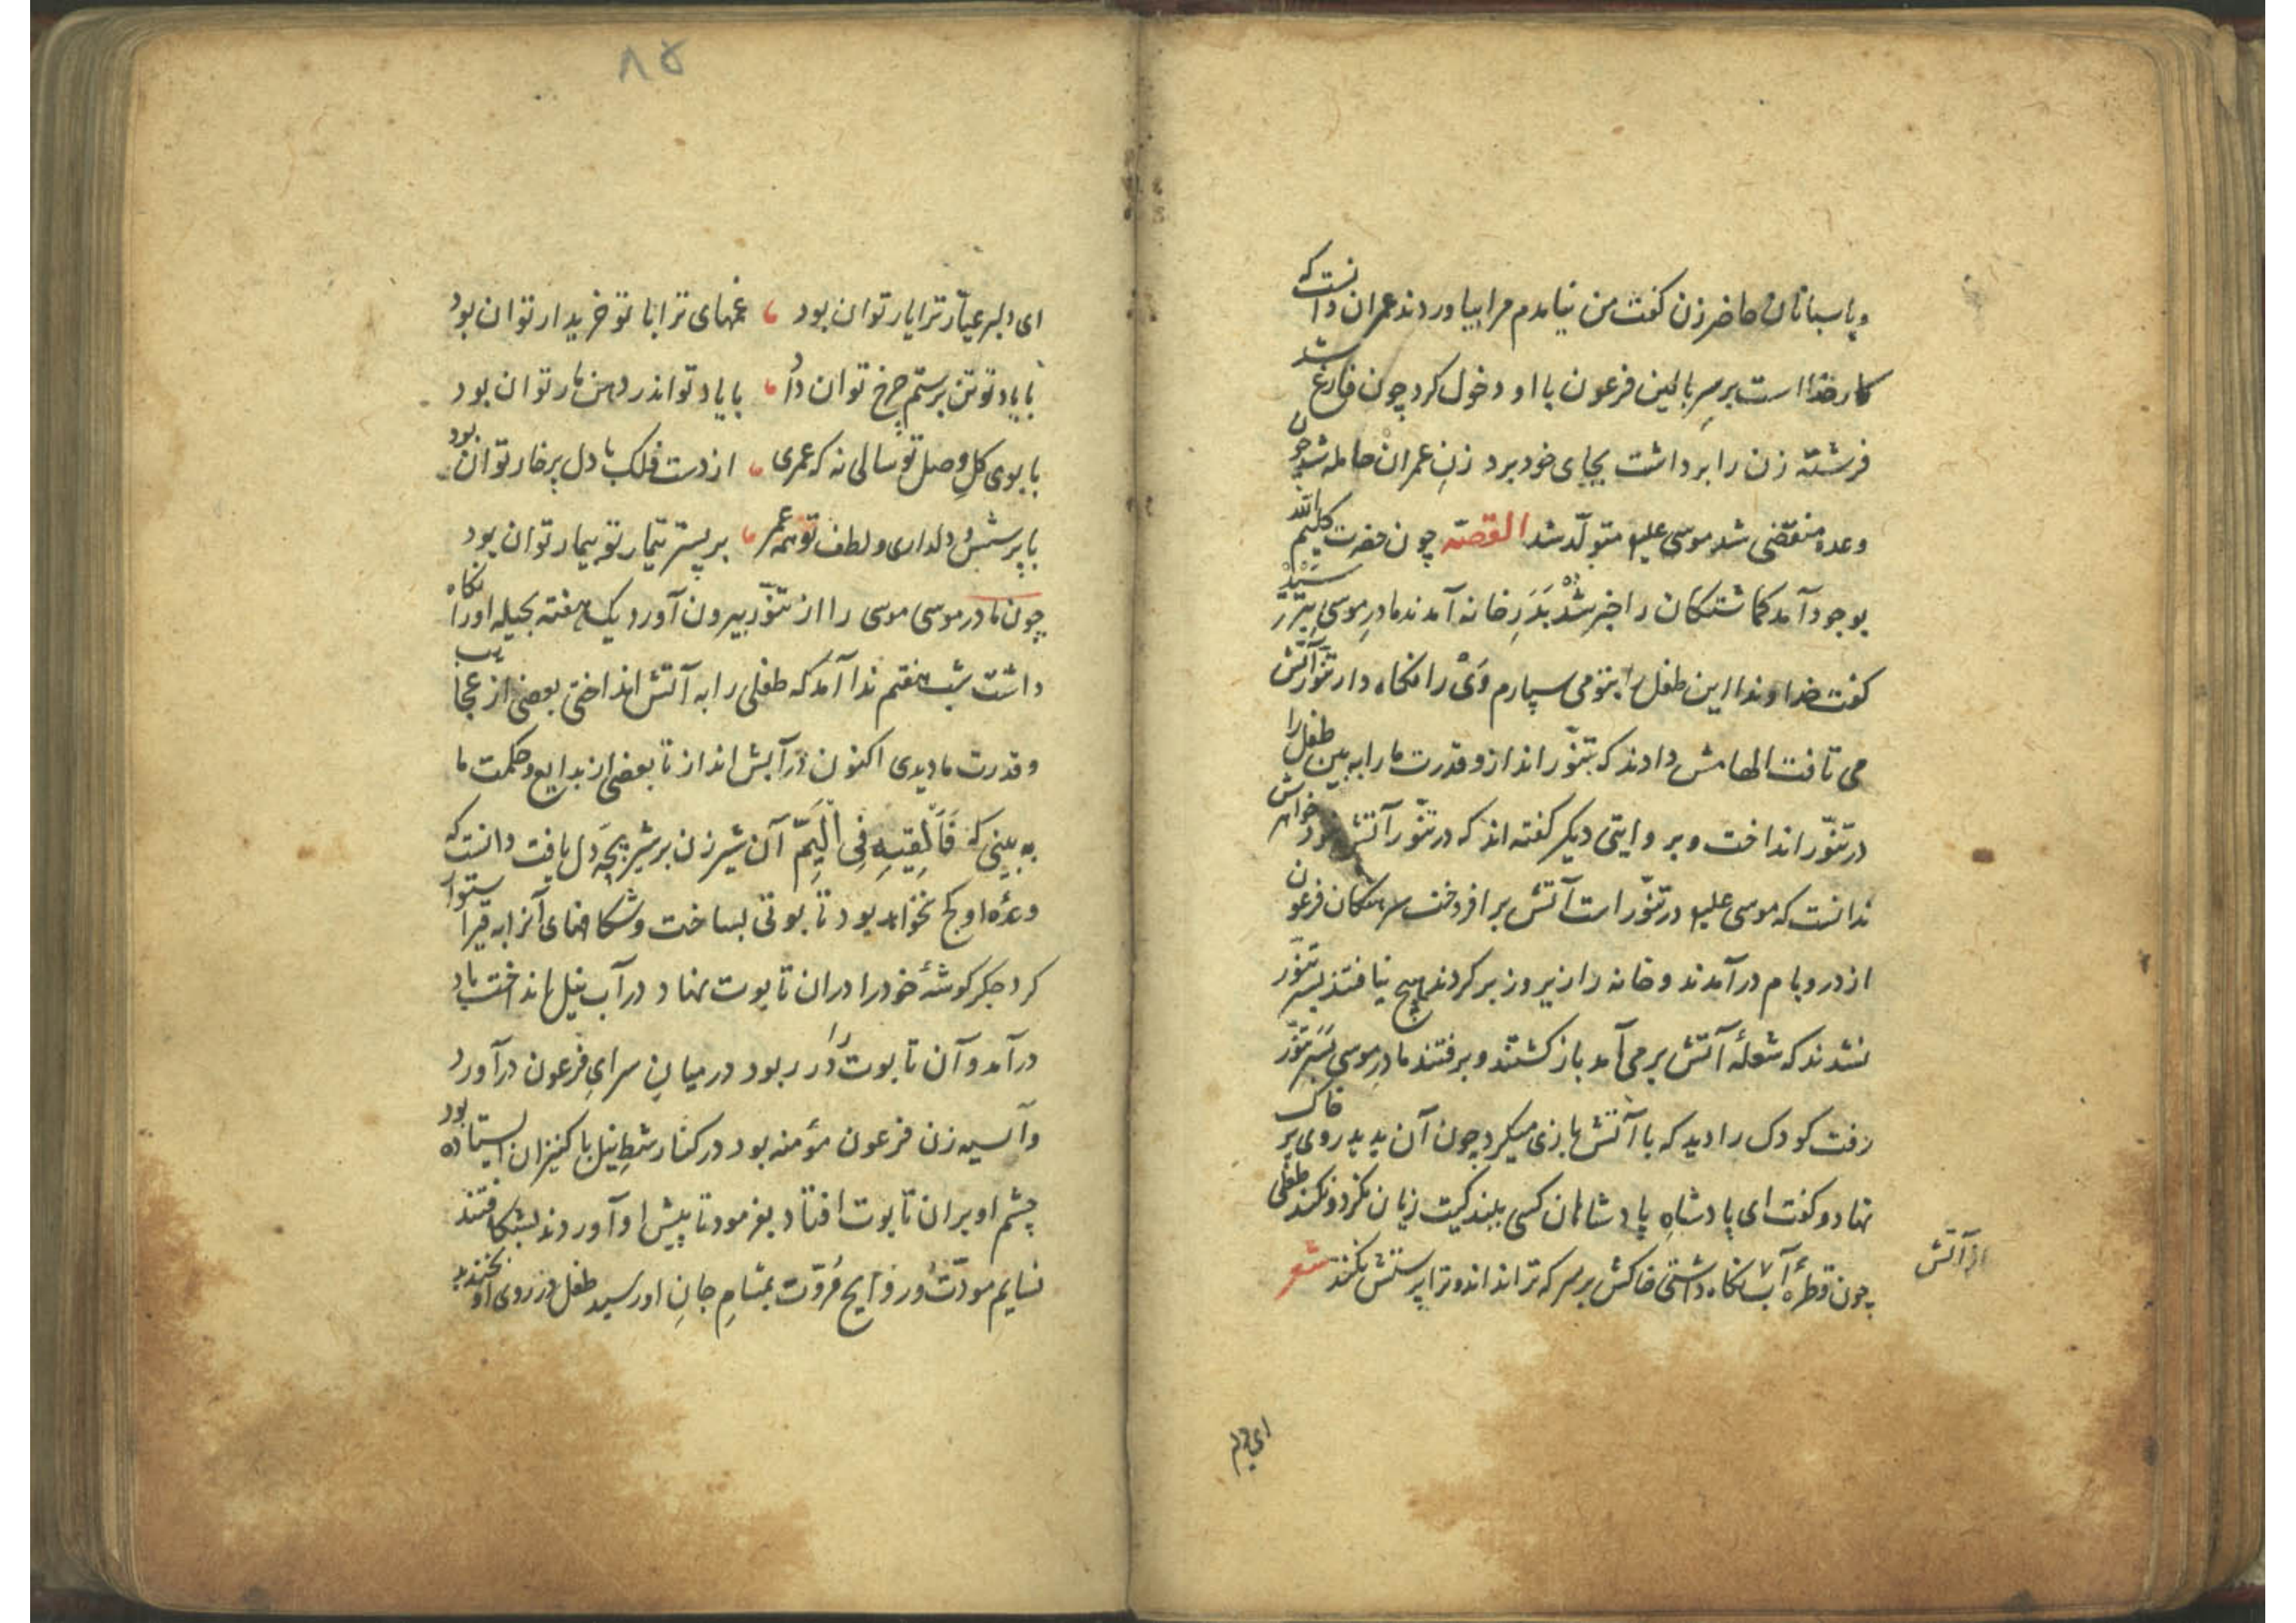 وپاسبانان حاضر زن گفت من نیامدم مرا بیاوردند عمران دانست که
کار خدا است برسرِ بالین فرعون با او دخول کرد چون فارغ شد
فرشته زن را برداشت بجای خود برد زنِ عمران حامله شد چون
وعده منقضی شد موسی علیه متولّد شد القصّه چون حضرت کلیم الله
بوجود آمد کماشتکان را خبر شد بَدَرِ خانه آمدند مادرِ موسی بترسید
گفت خداوندا این طفل را بتو می سپارم وَیْ را نکاه دار تنّور آتش
می تافت الهامش دادند که بتنّور انداز و قدرت ما را به بین طفل را
در تنّور انداخت و بر وایتی دیکر کفته اند که در تنّور آتش نبود خواهرش
ندانست که موسی علیه در تنّور است آتش بر افروخت سرهنکان فرعون
از در و بام درآمدند و خانه را زیر و زبر کردند هیچ نیافتند بسر تنّور
نشدند که شعلهٔ آتش برمی آمد باز کشتند و برفتند مادرِ موسی بَسَرِ تنّور
رفت کودک را دید که با آتش بازی میکرد چون آن بدید روی بر خاک
نهاد و گفت ای پادشاهِ پادشاهان کسی بلند کیت زیان نکرد و نکند طفلی
از آتش
چون قطرهٔ آب نکاه داشتی خاکش برسر که ترا نداند و ترا پرستش نکند شعر
ای دلبر
۸۵
ای دلبر عیّار ترا یار توان بود غمهای ترا با تو خریدار توان بود
با یاد تو تن برستم چرخ توان داد با یاد تو اندر دهن مار توان بود
با بوی کلِ وصل تو سالی نه که عمری از دست فلک با دل پر خار توان بود
با پرسش و دلداری و لطف تو همه عمر بر بستر تیمار تو بیمار توان بود
چون مادر موسی موسی را از تنّور بیرون آورد یک هفته بحیله او را نکاه
داشت شب هفتم ندا آمد که طفلی را به آتش انداختی بعضی از عجایب
و قدرت ما دیدی اکنون در آبش انداز تا بعضی از بدایع و حکمت ما
به بینی که فَاَلْقِیهِ فِی الْیَمِّ آن شیر زن بر شیر بچه دل یافت دانست که
وعدهٔ او کج نخواهد بود تابوتی بساخت و شکافهای آنرا به قیر استوار
کرد جکر کوشهٔ خود را در ان تابوت نهاد و در آب نیل انداخت باد
درآمد و آن تابوت را در ربود در میانِ سرایِ فرعون درآورد
و آسیه زن فرعون مؤمنه بود در کنار شطِ نیل با کنیزان ایستاده بود
چشم او بر ان تابوت افتاد بفرمود تا پیش او آوردند بشکافتند
نسایم مودّت و روایح مُروّت بمشامِ جانِ او رسید طفل در روی او بخندید